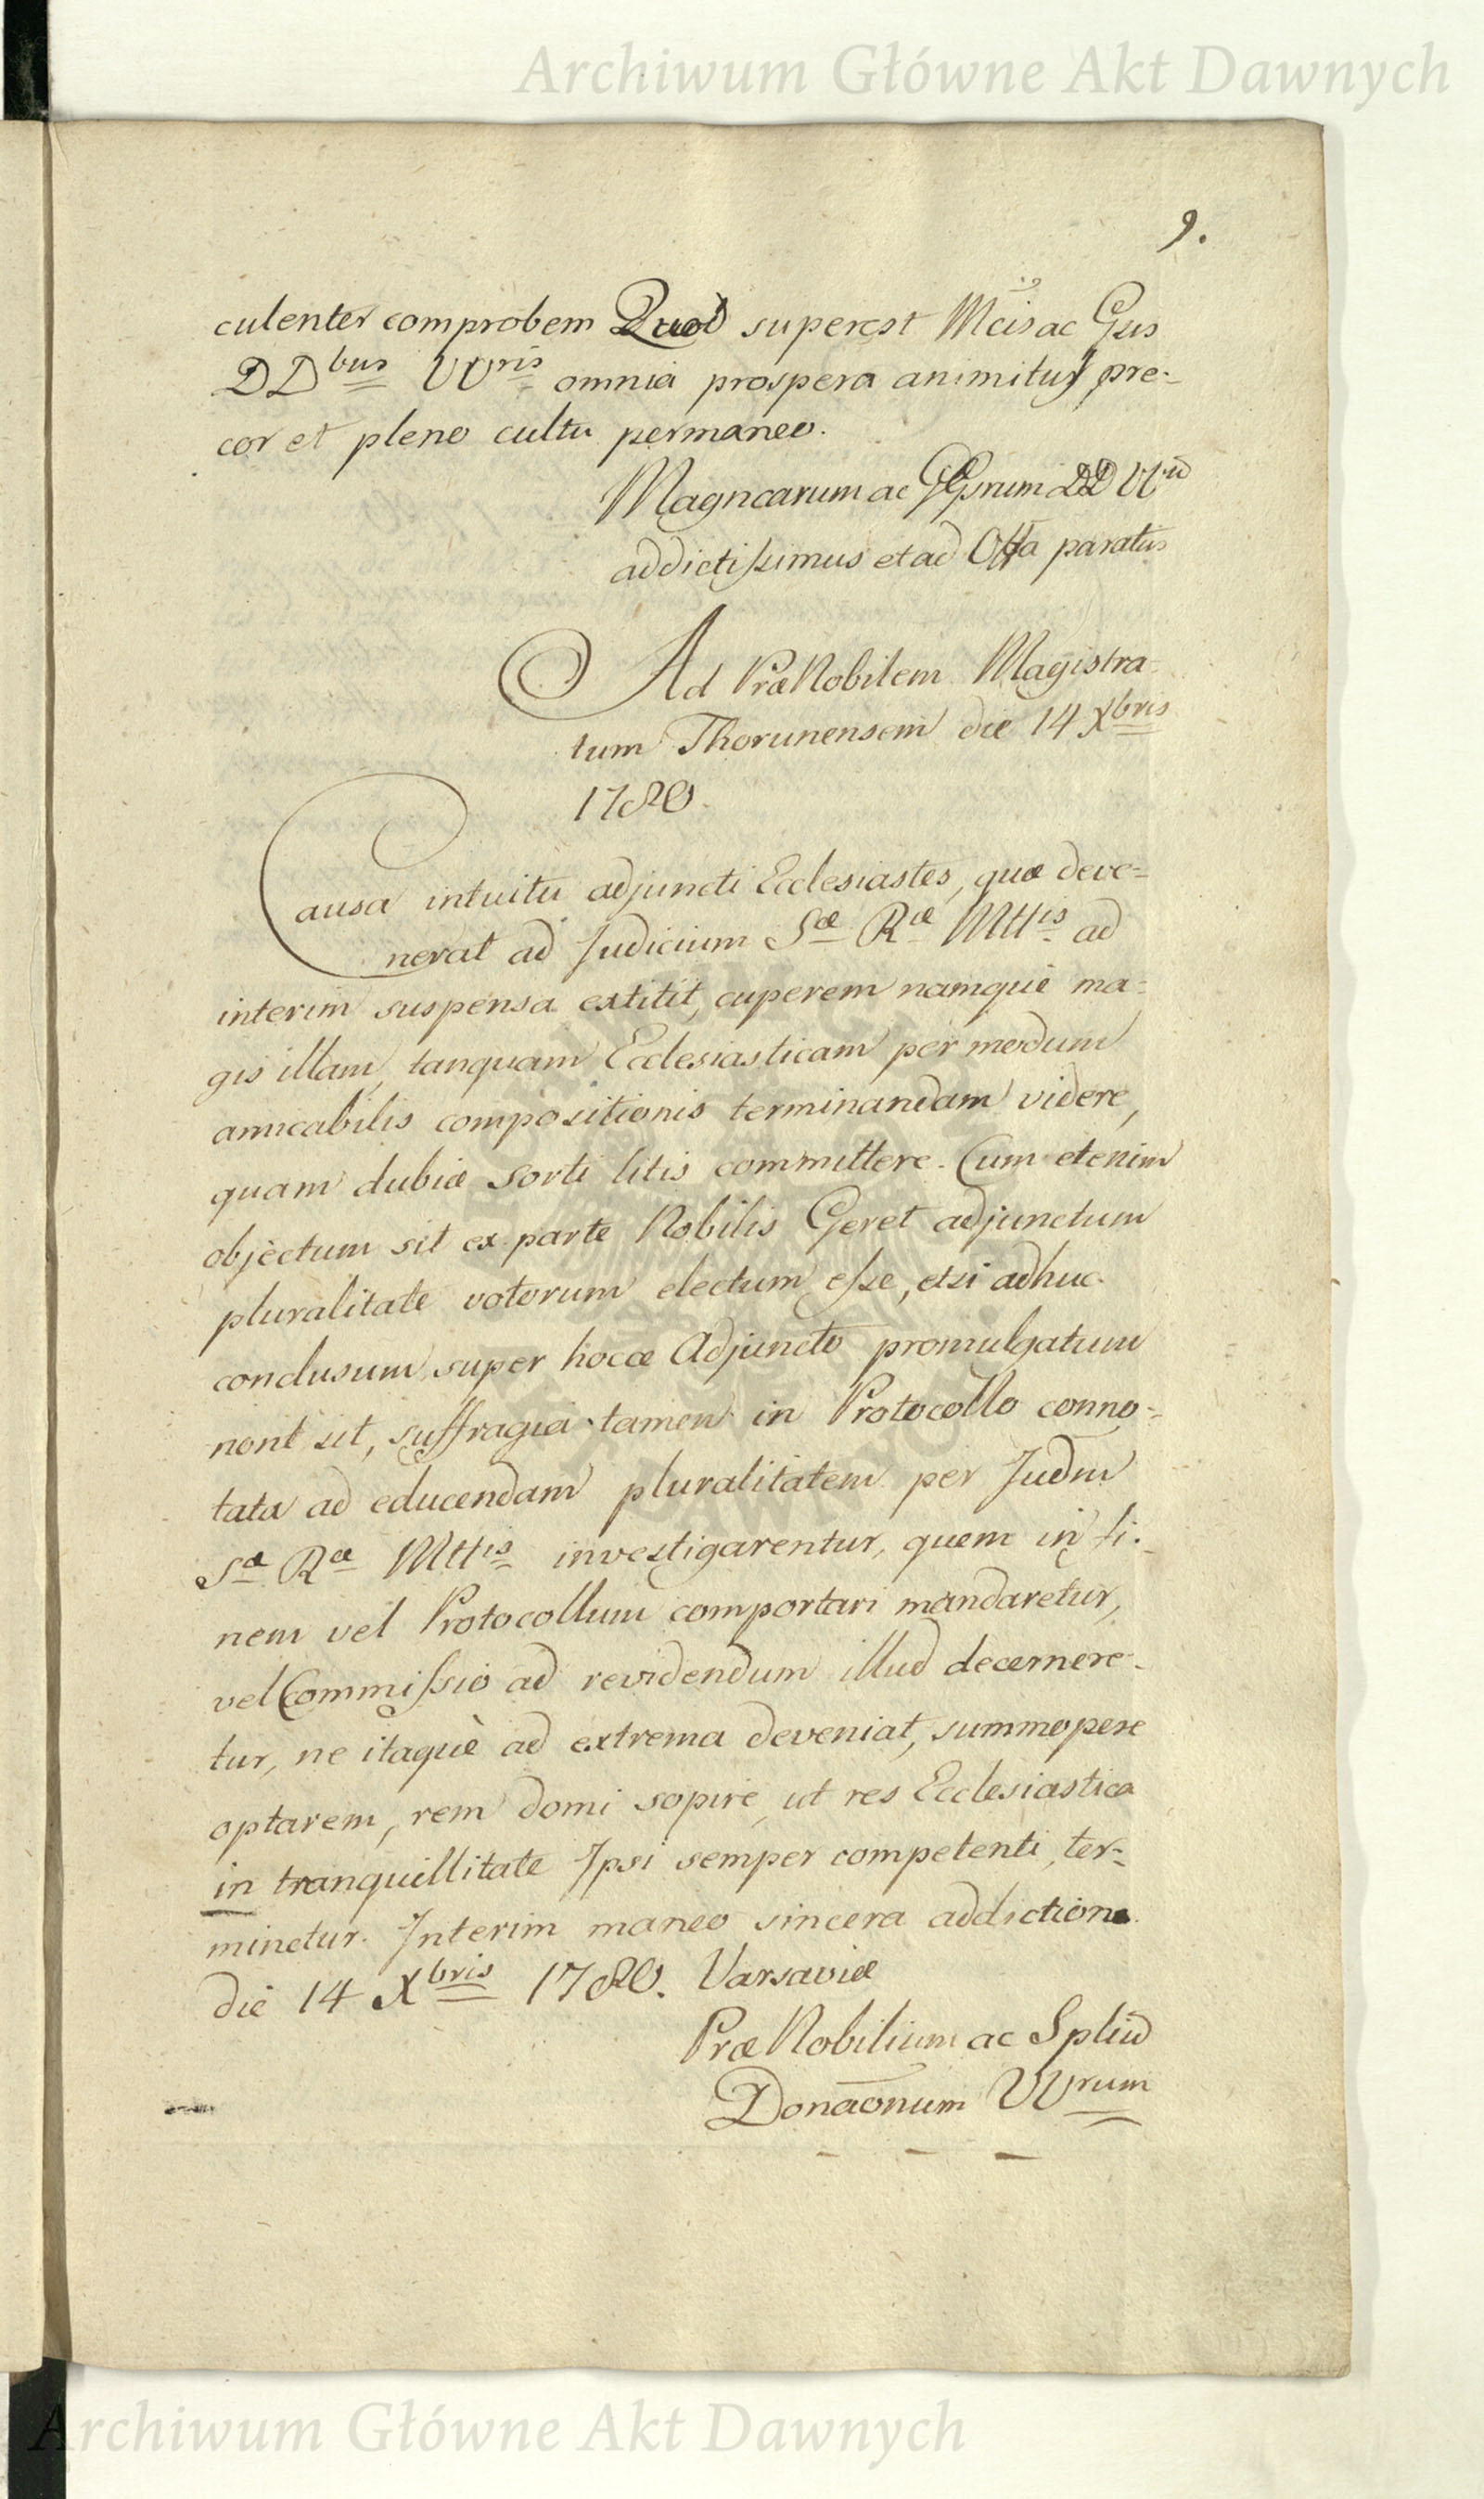 Archiwum Główne Akt Dawnych
9.
culenter comprobem Quod superest Mcis ac Gus
DDbus VVris omnia prospera animitus pre-
cor et pleno cultu permaneo.
Magncarum ac GGsrum DD VV
addictissimus et ad Offa paratus
Ad PræNobilem Magistra-
tum Thorunensem die 14 Xbris
1780.
Causa intuitu adjuncti Ecclesiastes, quæ deve-
nerat ad Judicium Sæ Ræ Mttis ad
interim suspensa extitit, cuperem namque ma-
gis illam, tanquam Ecclesiasticam per modum
amicabilis compositionis terminandam videre,
quam dubiæ sorti litis committere. Cum etenim
objectum sit ex parte Nobilis Geret adjunctum
pluralitate votorum electum esse, etsi adhuc
conclusum super hocce Adjuncto promulgatum
non sit, suffragia tamen in Protocollo conno-
tata ad educendam pluralitatem per Judm
Sæ Ræ Mttis investigarentur, quem in fi-
nem vel Protocollum comportari mandaretur,
vel Commissio ad revidendum illud decernere-
tur, ne itaquè ad extrema deveniat, summopere
optarem, rem domi sopire, ut res Ecclesiastica
in tranquillitate Ipsi semper competenti, ter-
minetur. Interim maneo sincera addictione
die 14 Xbris 1780. Varsaviæ
PræNobilium ac Spliu
Donaonum VVrum
Archiwum Główne Akt Dawnych